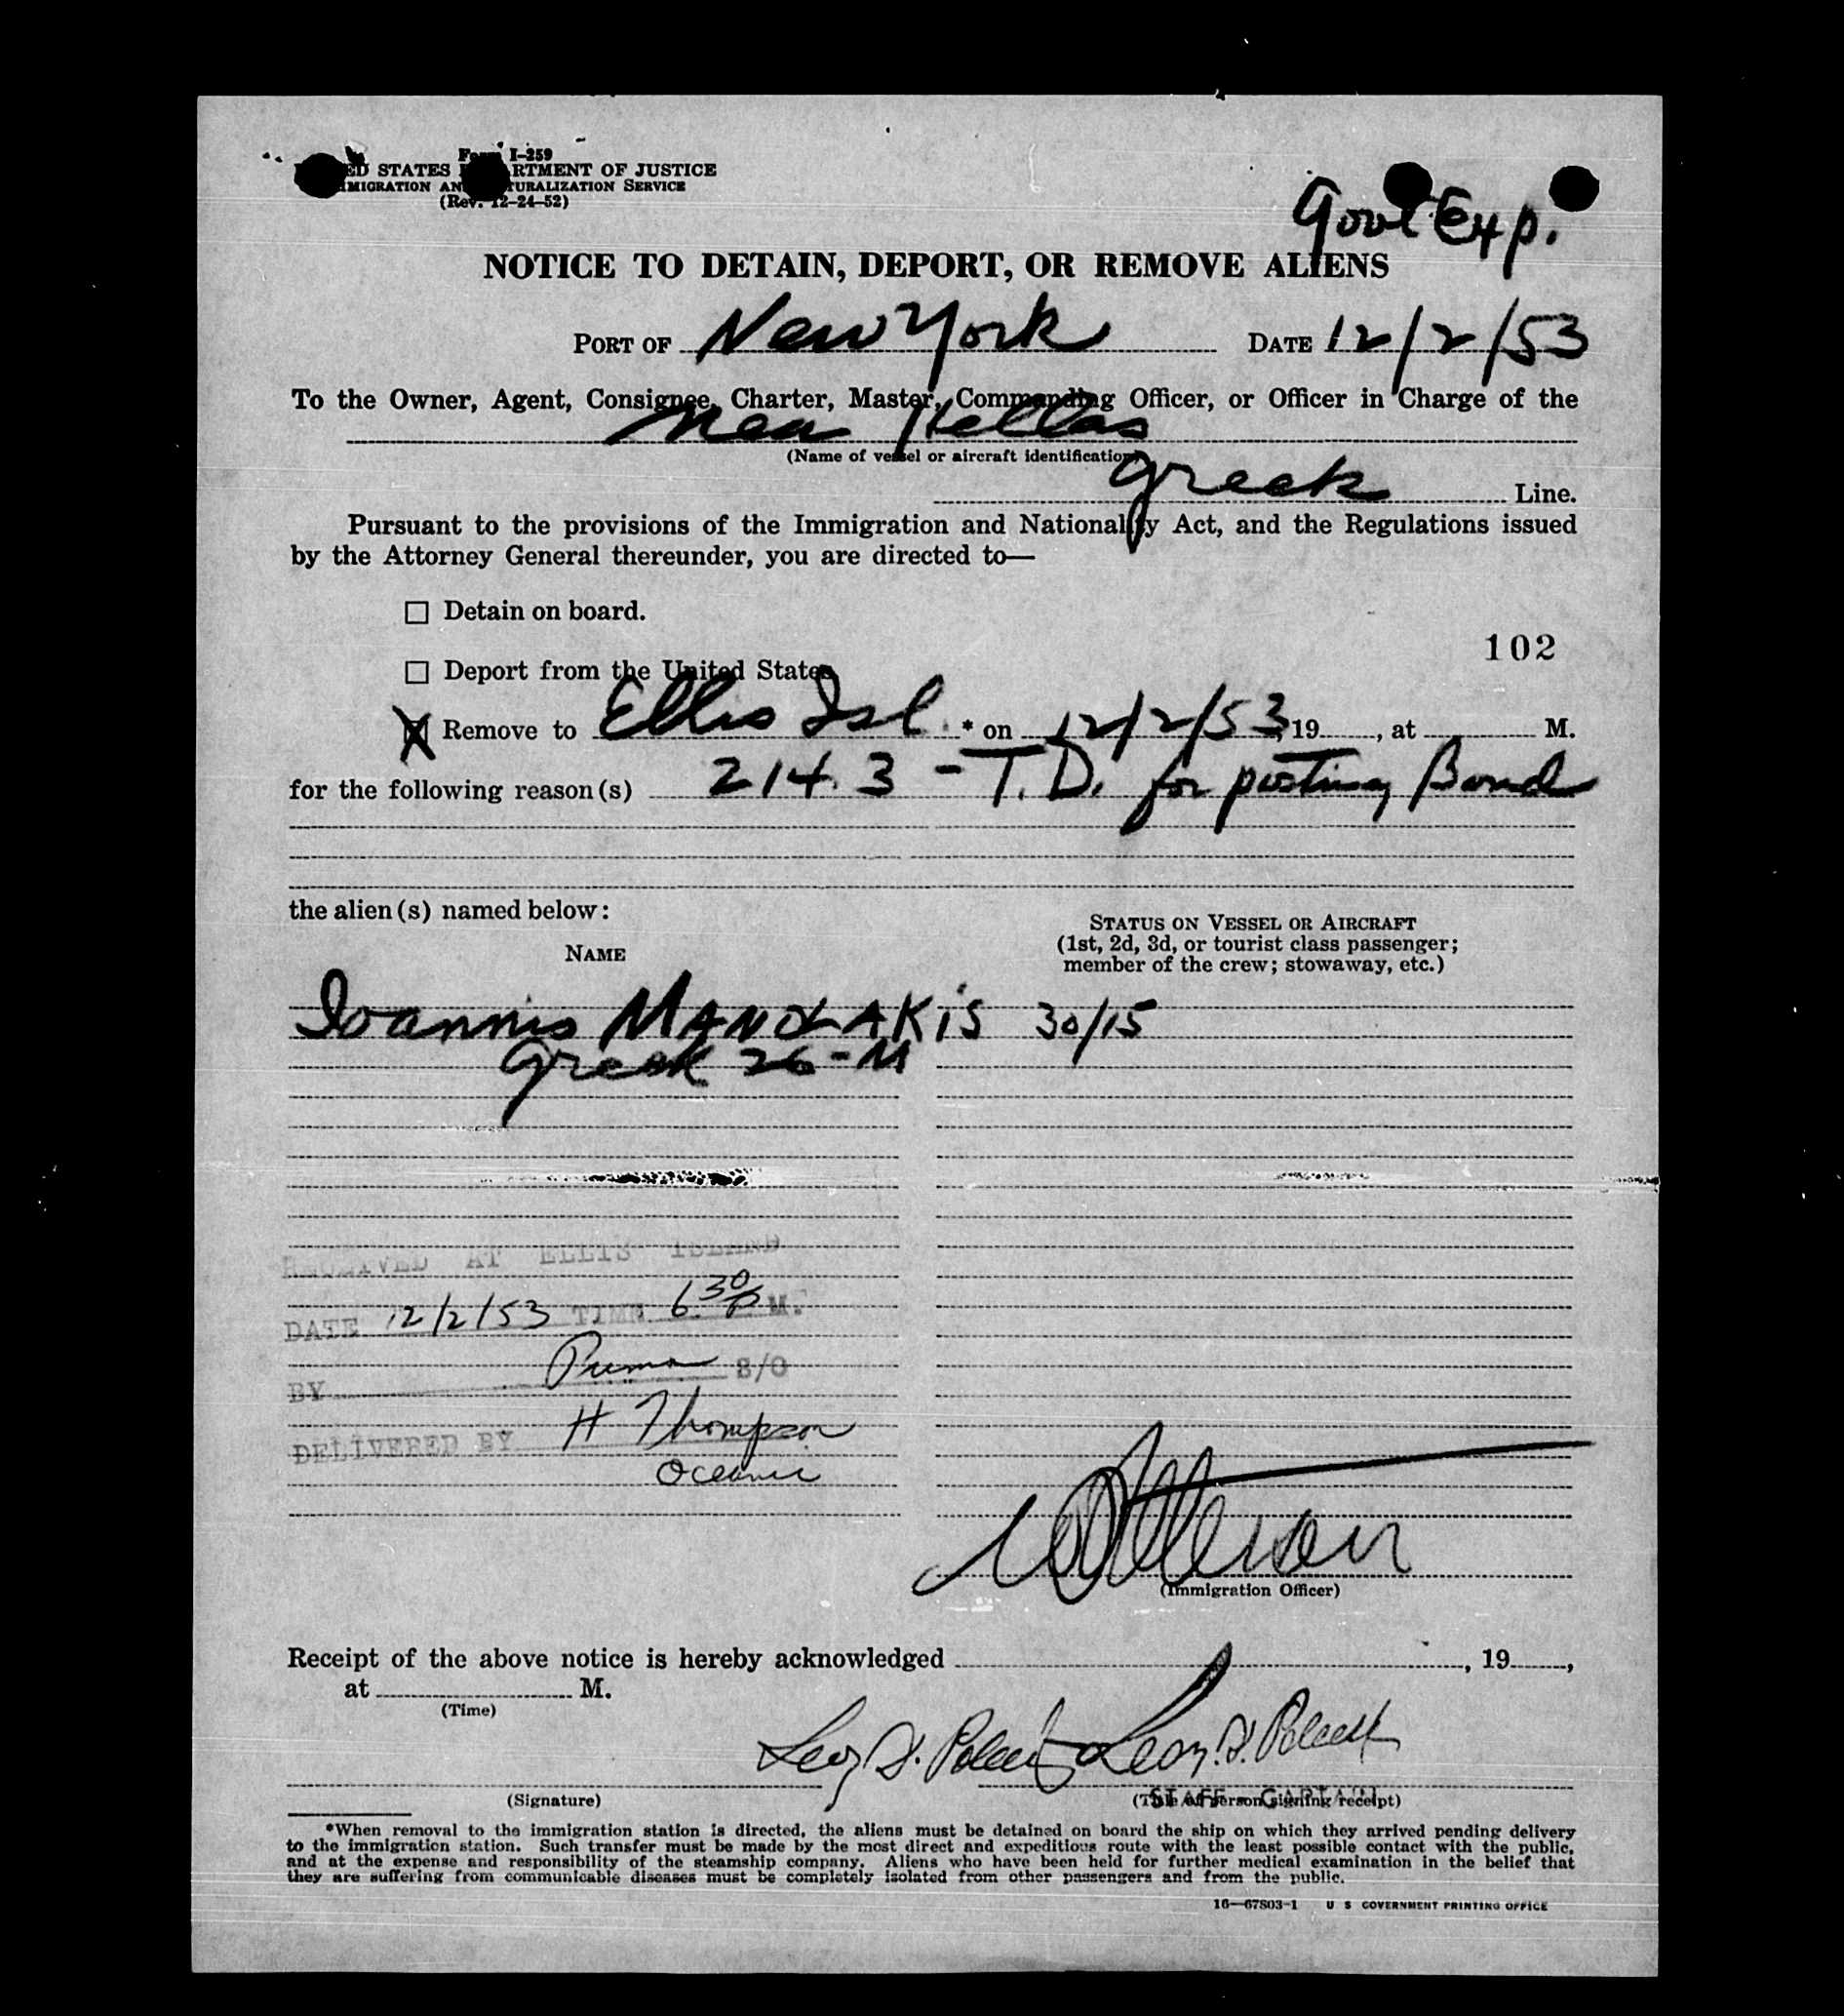 Form I-259
UNITED STATES DEPARTMENT OF JUSTICE
IMMIGRATION AND NATURALIZATION SERVICE
(Rev. 12-24-52)
Govt Exp.
NOTICE TO DETAIN, DEPORT, OR REMOVE ALIENS
PORT OF New York DATE 12/2/53
To the Owner, Agent, Consignee, Charter, Master, Commanding Officer, or Officer in Charge of the
Nea Hellas
(Name of vessel or aircraft identification)
Greek Line.
Pursuant to the provisions of the Immigration and Nationality Act, and the Regulations issued
by the Attorney General thereunder, you are directed to—
☐ Detain on board.
102
☐ Deport from the United States.
☒ Remove to Ellis Isl. * on 12/2/53, 19 , at M.
for the following reason(s) 214.3 - T.D. for posting Bond
the alien(s) named below:
STATUS ON VESSEL OR AIRCRAFT
(1st, 2d, 3d, or tourist class passenger;
member of the crew; stowaway, etc.)
NAME
Ioannis MANOLAKIS 30/15
Greek 26-M
RECEIVED AT ELLIS ISLAND
DATE 12/2/53 TIME 6:30 P M.
BY S/O
DELIVERED BY H Thompson
Oceanic
(Immigration Officer)
Receipt of the above notice is hereby acknowledged , 19 ,
at M.
(Time)
STAFF - CAPTAIN
(Signature) (Title of person signing receipt)
*When removal to the immigration station is directed, the aliens must be detained on board the ship on which they arrived pending delivery
to the immigration station. Such transfer must be made by the most direct and expeditious route with the least possible contact with the public,
and at the expense and responsibility of the steamship company. Aliens who have been held for further medical examination in the belief that
they are suffering from communicable diseases must be completely isolated from other passengers and from the public.
16—67803-1 U S GOVERNMENT PRINTING OFFICE